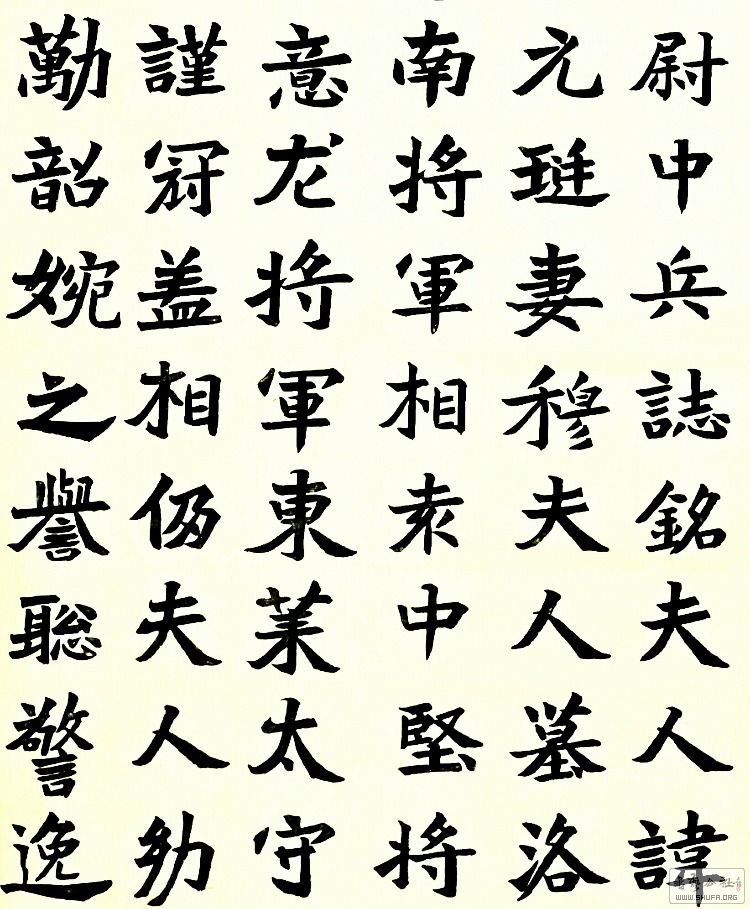 尉中兵誌銘夫人諱
元珽妻穆夫人墓洛
南将軍相袁中堅将
意龙将軍東莱太守
謹冠盖相仍夫人幼
勤韶婉之譽聰警逸
WWW.SHUFA.ORG